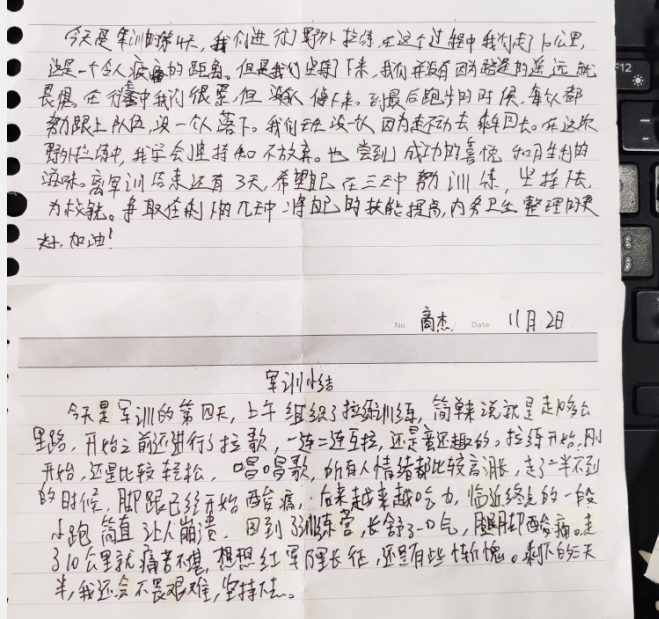 今天是军训的第4天，我们进行了野外拉练，在这个过程中我们走了10公里，
这是一个令人疲惫的距离。但是我们坚持了下来，我们并没有因为路途的遥远就
畏惧。在行军中我们很累，但没人停下来。到最后跑步的时候，每人都
努力跟上队伍，没一个人落下。我们也没一人因为走不动去乘车回去。在这次
野外拉练中，我学会坚持和不放弃。也尝到了成功的喜悦和胜利的
滋味。离军训结束还有3天，希望自己在三天中努力训练，坚持下去，
为我能。争取在剩下的几天中将自己的技能提高，内务卫生整理的更
好，加油！
No 商杰 Date 11月2日
军训小结
今天是军训的第四天，上午组织了拉练训练，简单来说就是走10多公
里路，开始之前还进行了拉歌，一连二连互拉，还是蛮有趣的。拉练开始，刚
开始，还是比较轻松，唱唱歌，所有人情绪都比较高涨，走了一半不到
的时候，脚跟已经开始酸痛，后来越来越吃力，临近终点的一段
小跑简直让人崩溃，回到了训练营，长舒了一口气，腿脚酸痛。走
了10公里就痛苦不堪，想想红军万里长征，还是有些惭愧。剩下的三天
半，我还会不畏艰难，坚持下去。
F12